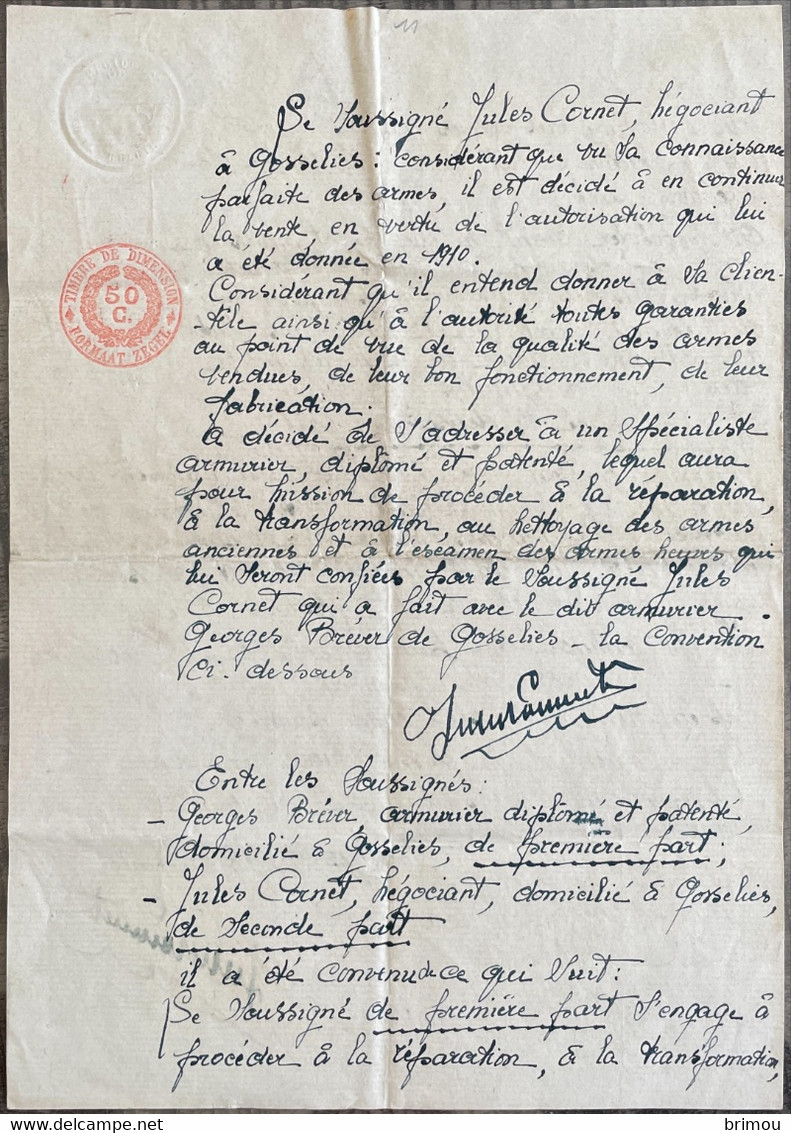 11
Le Soussigné Jules Cornet, négociant
à Gosselies : considérant que vu sa connaissance
parfaite des armes, il est décidé à en continuer
la vente en vertu de l'autorisation qui lui
a été donnée en 1910.
Considérant qu'il entend donner à sa clien-
-tèle ainsi qu'à l'autorité toutes garanties
au point de vue de la qualité des armes
vendues, de leur bon fonctionnement, de leur
fabrication.
A décidé de s'adresser à un spécialiste
armurier, diplômé et patenté, lequel aura
pour mission de procéder à la réparation,
à la transformation, au nettoyage des armes
anciennes et à l'eséamen des armes neuves qui
lui seront confiées par le soussigné Jules
Cornet qui a fait avec le dit armurier
Georges Bréver de Gosselies - la convention
ci-dessous
TIMBRE DE DIMENSION
50
C.
FORMAAT ZEGEL
Entre les soussignés :
- Georges Bréver, armurier diplômé et patenté,
domicilié à Gosselies, de première part ;
- Jules Cornet, négociant, domicilié à Gosselies,
de seconde part
il a été convenu de ce qui suit :
Le soussigné de première part s'engage à
procéder à la réparation, à la transformation,
delcampe.net
brimou